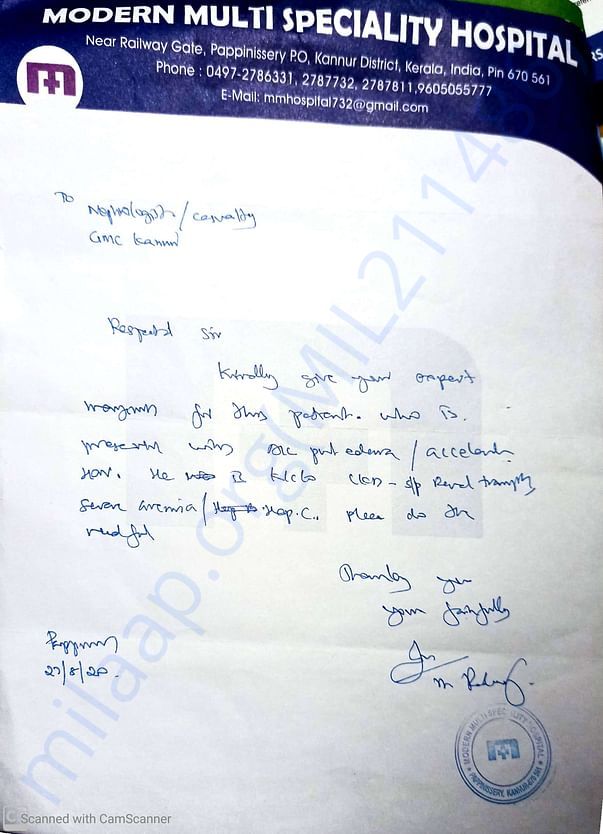 MODERN MULTI SPECIALITY HOSPITAL
Near Railway Gate, Pappinissery P.O, Kannur District, Kerala, India, Pin 670 561
Phone : 0497-2786331, 2787732, 2787811,9605055777
E-Mail: mmhospital732@gmail.com
To
Nephrologist/casualty
GMC Kannur
Respected Sir
Kindly give your expert
for this patient. who is
present with edema /
HTN. He is K/c/o CKD - s/p Renal
Severe anemia/ Hep.C.. please do the
needful
Thanking you
your faithfully
27/8/20.
MODERN MULTI SPECIALITY HOSPITAL
PAPPINISSERY, KANNUR-670 561
milaap.org(MIL211480
Scanned with CamScanner